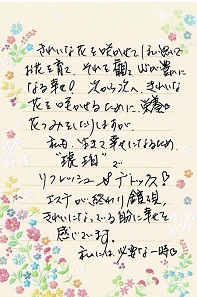 きれいな花を咲かせて下さいと思って
お花を育て、それを観て心が豊かに
なる幸せ！次から次へ、きれいな
花を咲かせるために、栄養♡
花つみをしたりしますが、
私も、生きて幸せになるため、
"琥珀"で
リフレッシュ♡デトックス♡
エステが終わり鏡を見て、
きれいになっている肌に幸せを
感じています。
私には、必要な一時♡